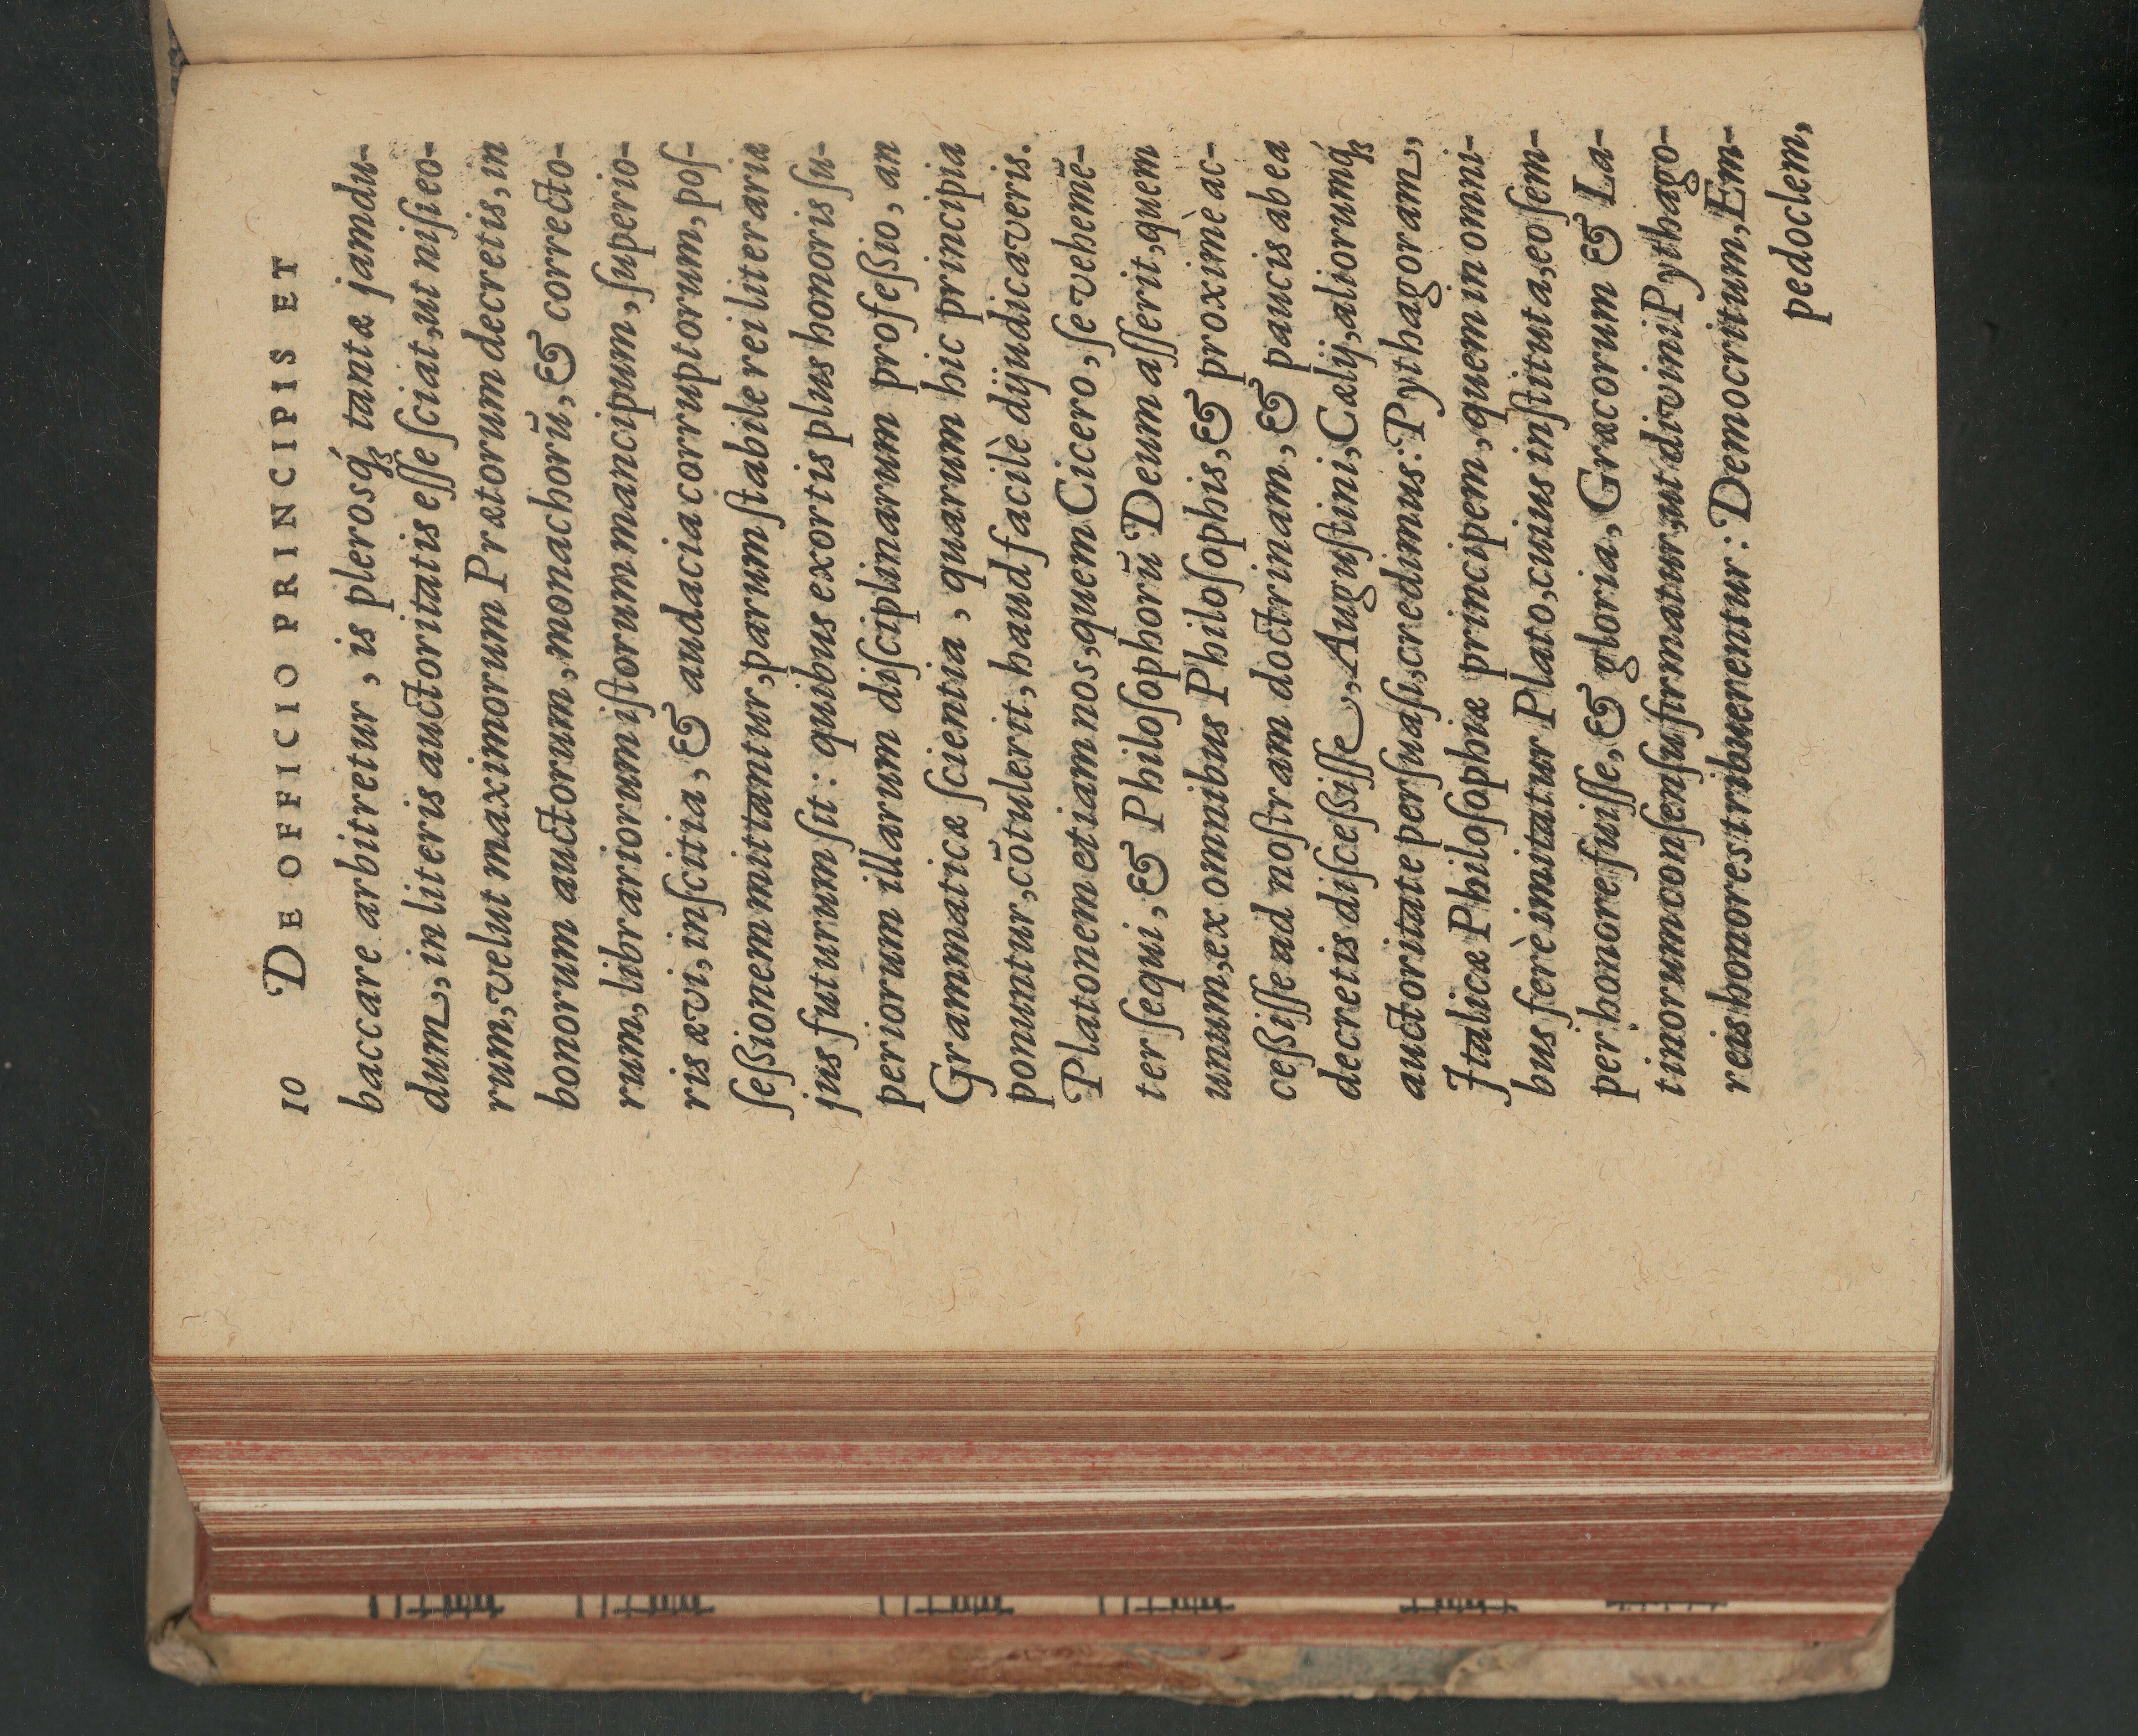 10 DE OFFICIO PRINCIPIS ET
baccare arbitretur, is plerosq́ꝫ tantæ jamdu-
dum, in literis auctoritatis eſſe ſciat, ut niſi eo-
rum, velut maximorum Prætorum decretis, in
bonorum auctorum, monachorū, & correcto-
rum, librariorum iſtorum mancipum, ſuperio-
ris ævi, inſcitia, & audacia corruptorum, poſ-
ſeßionem mittantur, parum ſtabile rei literariæ
jus futurum ſit: quibus exortis plus honoris ſu-
periorum illarum diſciplinarum profeßio, an
Grammaticæ ſcientia, quarum hic principia
ponuntur, cōtulerit, haud facilè dijudicaveris.
Platonem etiam nos, quem Cicero, ſe vehemē-
ter ſequi, & Philoſophorū Deum aſſerit, quem
unum, ex omnibus Philoſophis, & proximè ac-
ceßiſſe ad noſtram doctrinam, & paucis ab ea
decretis diſceßiſſe, Auguſtini, Cælij, aliorumq́ꝫ
auctoritate perſuaſi, credimus: Pythagoram,
Italicæ Philoſophiæ principem, quem in omni-
bus ferè imitatur Plato, cuius inſtituta, eo ſem-
per honore fuiſſe, & gloria, Græcorum & La-
tinorum conſenſu firmatur, ut divini Pythago-
reis honores tribuerentur: Democritum, Em-
pedoclem,